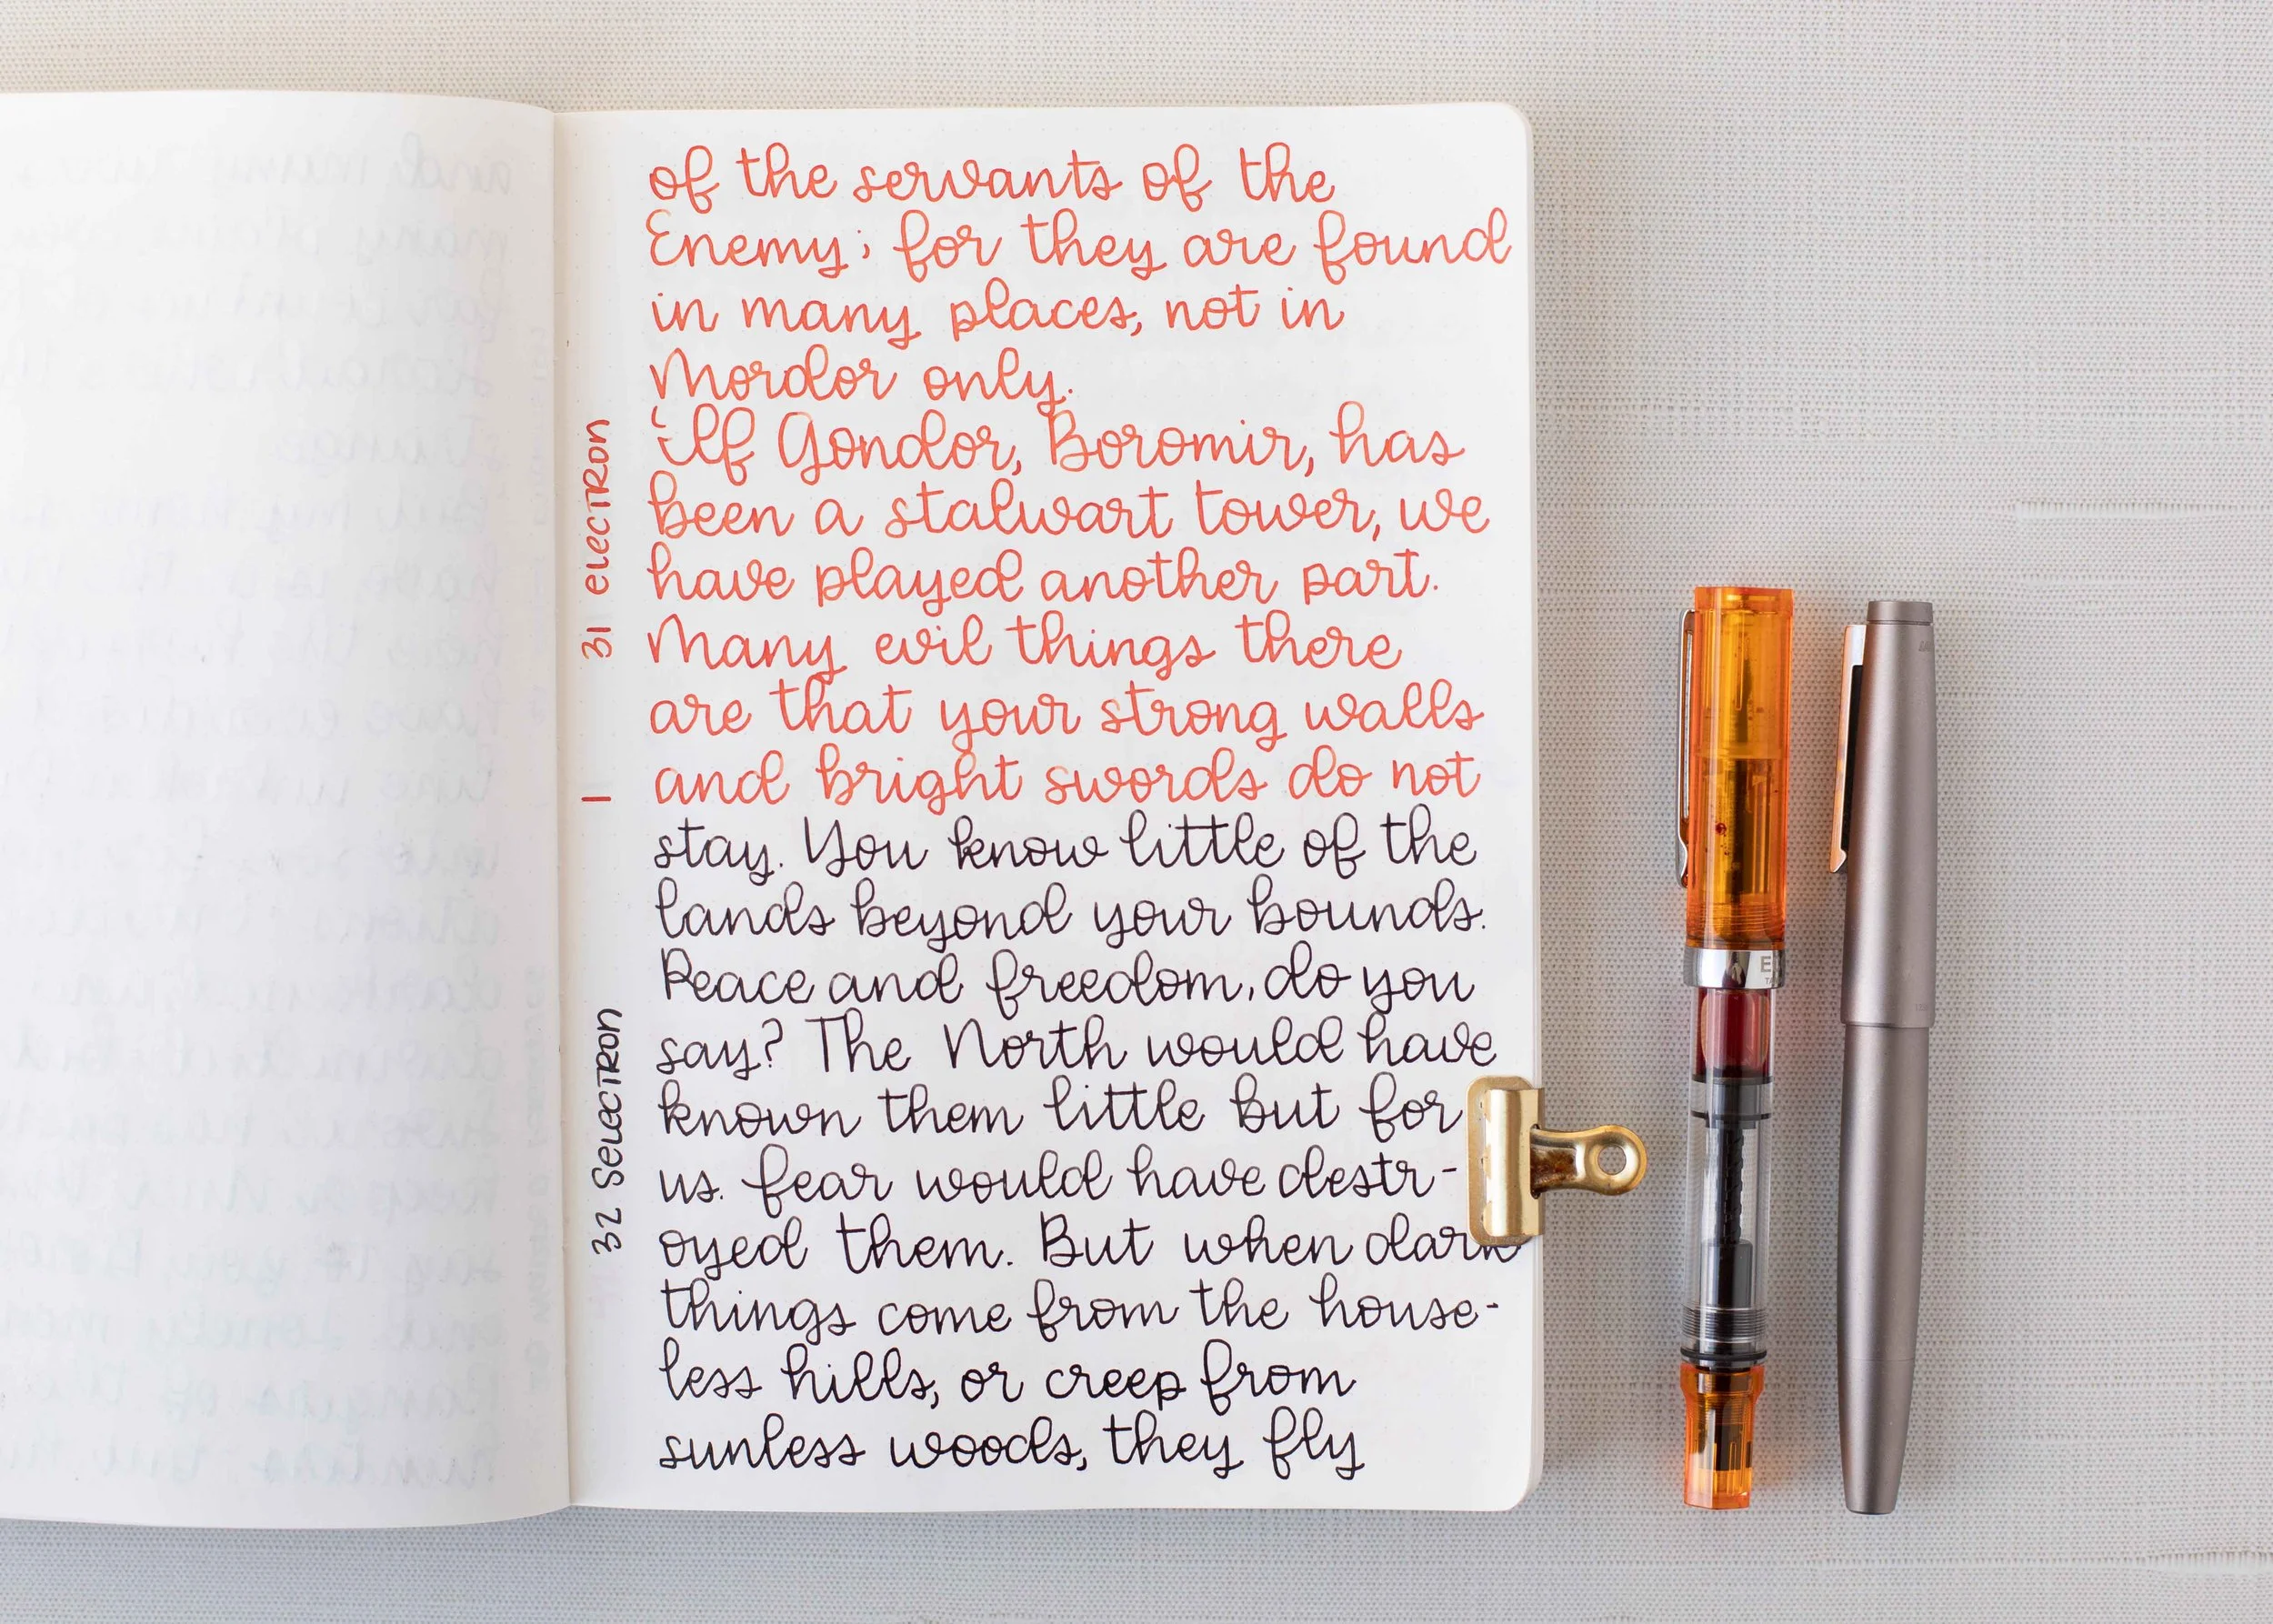 of the servants of the
Enemy; for they are found
in many places, not in
Mordor only.
'If Gondor, Boromir, has
been a stalwart tower, we
have played another part.
Many evil things there
are that your strong walls
and bright swords do not
stay. You know little of the
lands beyond your bounds.
Peace and freedom, do you
say? The North would have
known them little but for
us. fear would have destr-
oyed them. But when dark
things come from the house-
less hills, or creep from
sunless woods, they fly
31 electron
1
32 Selectron